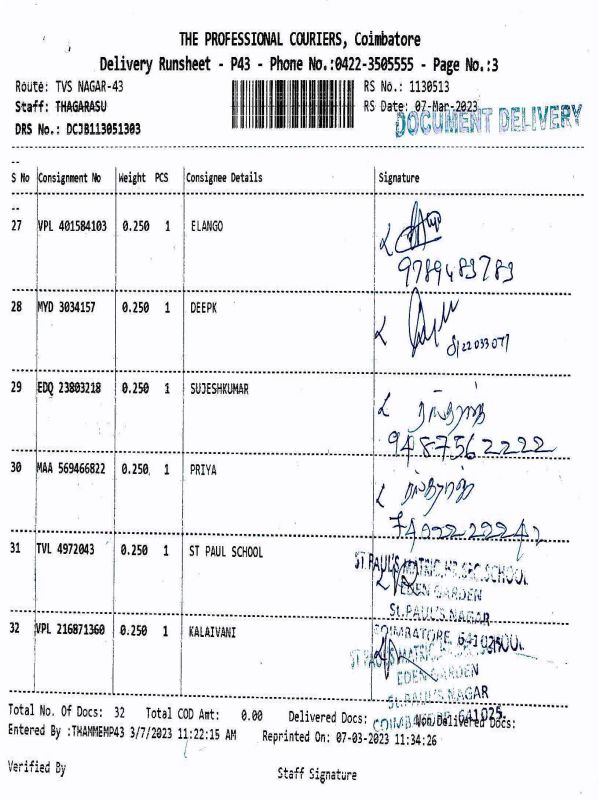 THE PROFESSIONAL COURIERS, Coimbatore
Delivery Runsheet - P43 - Phone No.:0422-3505555 - Page No.:3
Route: TVS NAGAR-43
RS No.: 1130513
Staff: THAGARASU
RS Date: 07-Mar-2023
DOCUMENT DELIVERY
DRS No.: DCJB113051303
--
S No Consignment No Weight PCS Consignee Details Signature
--
27 VPL 401584103 0.250 1 ELANGO
9789489789
28 MYD 3034157 0.250 1 DEEPK
29 EDQ 23803218 0.250 1 SUJESHKUMAR
9487562222
30 MAA 569466822 0.250 1 PRIYA
31 TVL 4972043 0.250 1 ST PAUL SCHOOL
ST.PAUL'S MATRIC.HR.SEC.SCHOOL
EDEN GARDEN
St.PAUL'S NAGAR
COIMBATORE, 641025
32 VPL 216871360 0.250 1 KALAIVANI
EDEN GARDEN
St.PAUL'S NAGAR
Total No. Of Docs: 32 Total COD Amt: 0.00 Delivered Docs: Non Delivered Docs:
Entered By :THANMEMP43 3/7/2023 11:22:15 AM Reprinted On: 07-03-2023 11:34:26
Verified By
Staff Signature